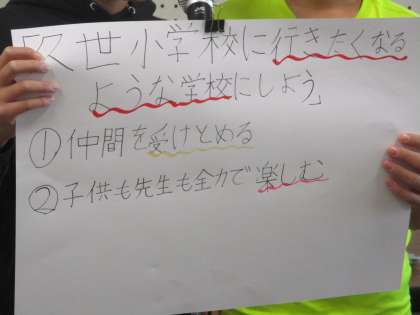 「久世小学校に行きたくなる
ような学校にしよう」
①仲間を受けとめる
②子供も先生も全力で楽しむ